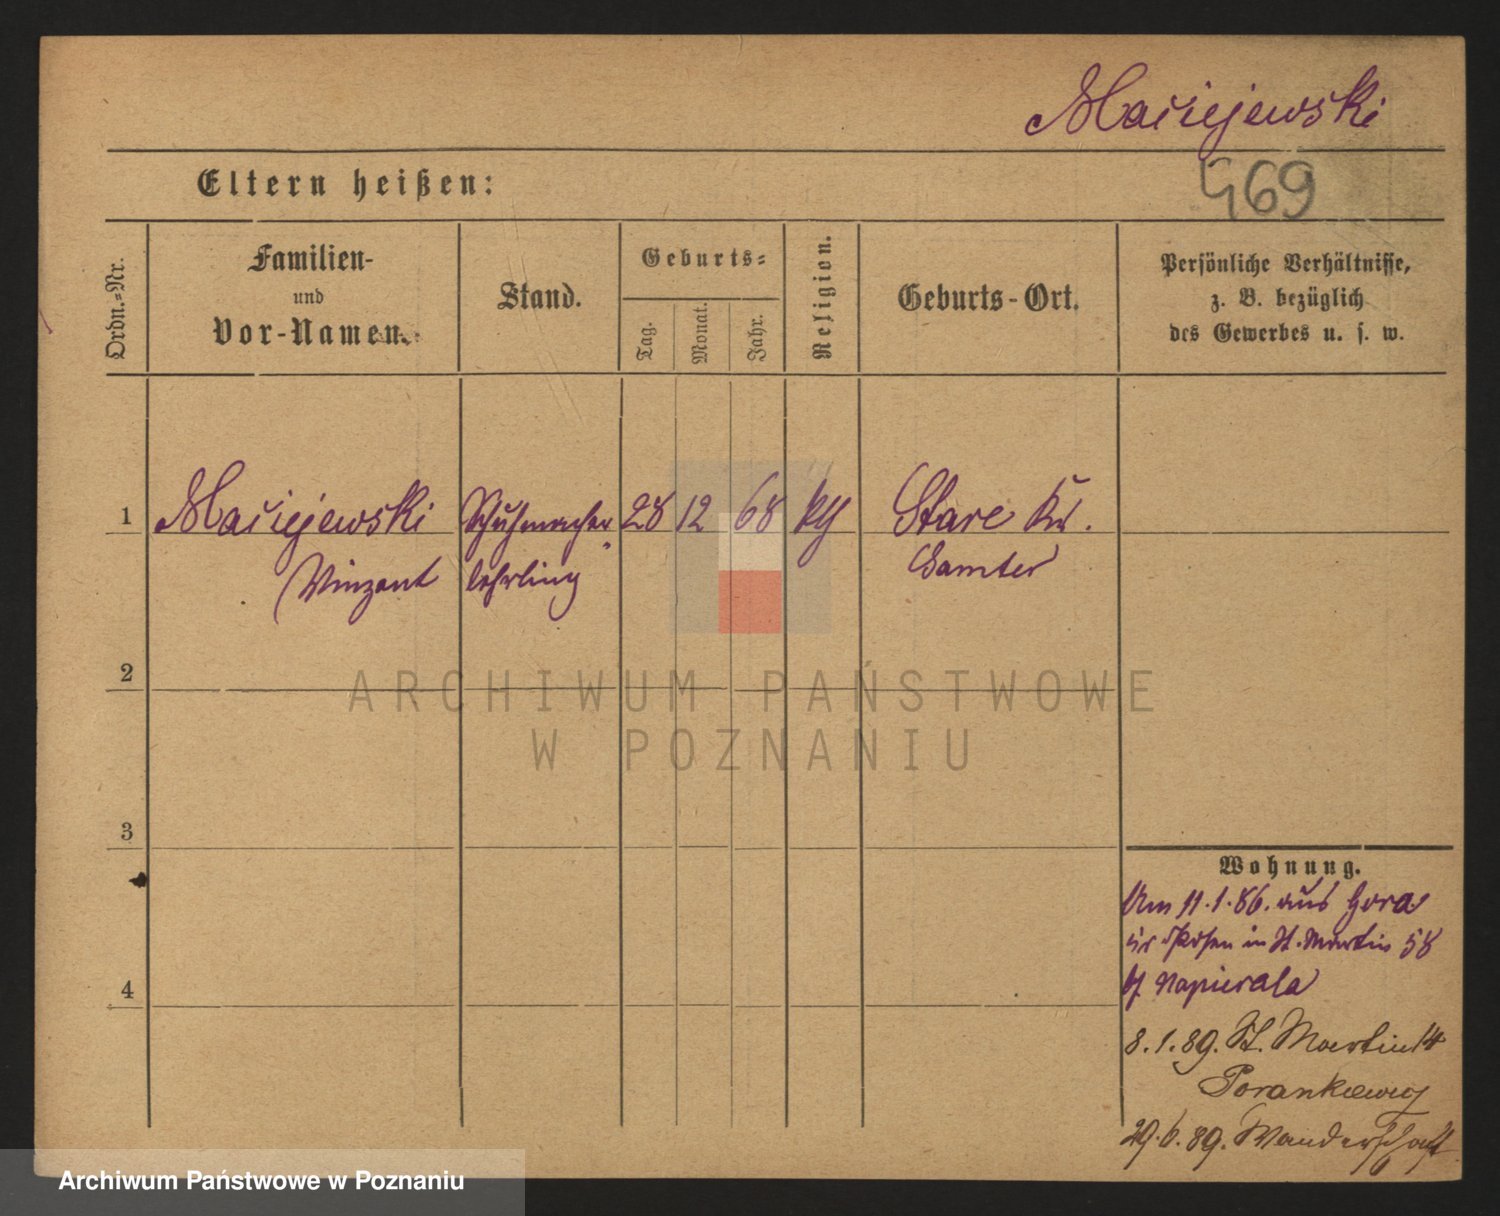 Maciejewski
469
Eltern heißen:
Ordn.=Nr.
Familien-
und
Vor-Namen.
Stand.
Geburts=
Tag.
Monat.
Jahr.
Religion.
Geburts-Ort.
Persönliche Verhältnisse,
z. B. bezüglich
des Gewerbes u. s. w.
1 Maciejewski Schuhmacher 28 12 68 Stare Kr.
Vinzent lehrling Samter
2
ARCHIWUM PAŃSTWOWE
W POZNANIU
3
Wohnung.
Am 11.1.86. aus Gora
Posen in St. Martin 58
b/ Napierala
4
8.1.89. St. Martin 14
29.6.89. Wanderschaft
Archiwum Państwowe w Poznaniu